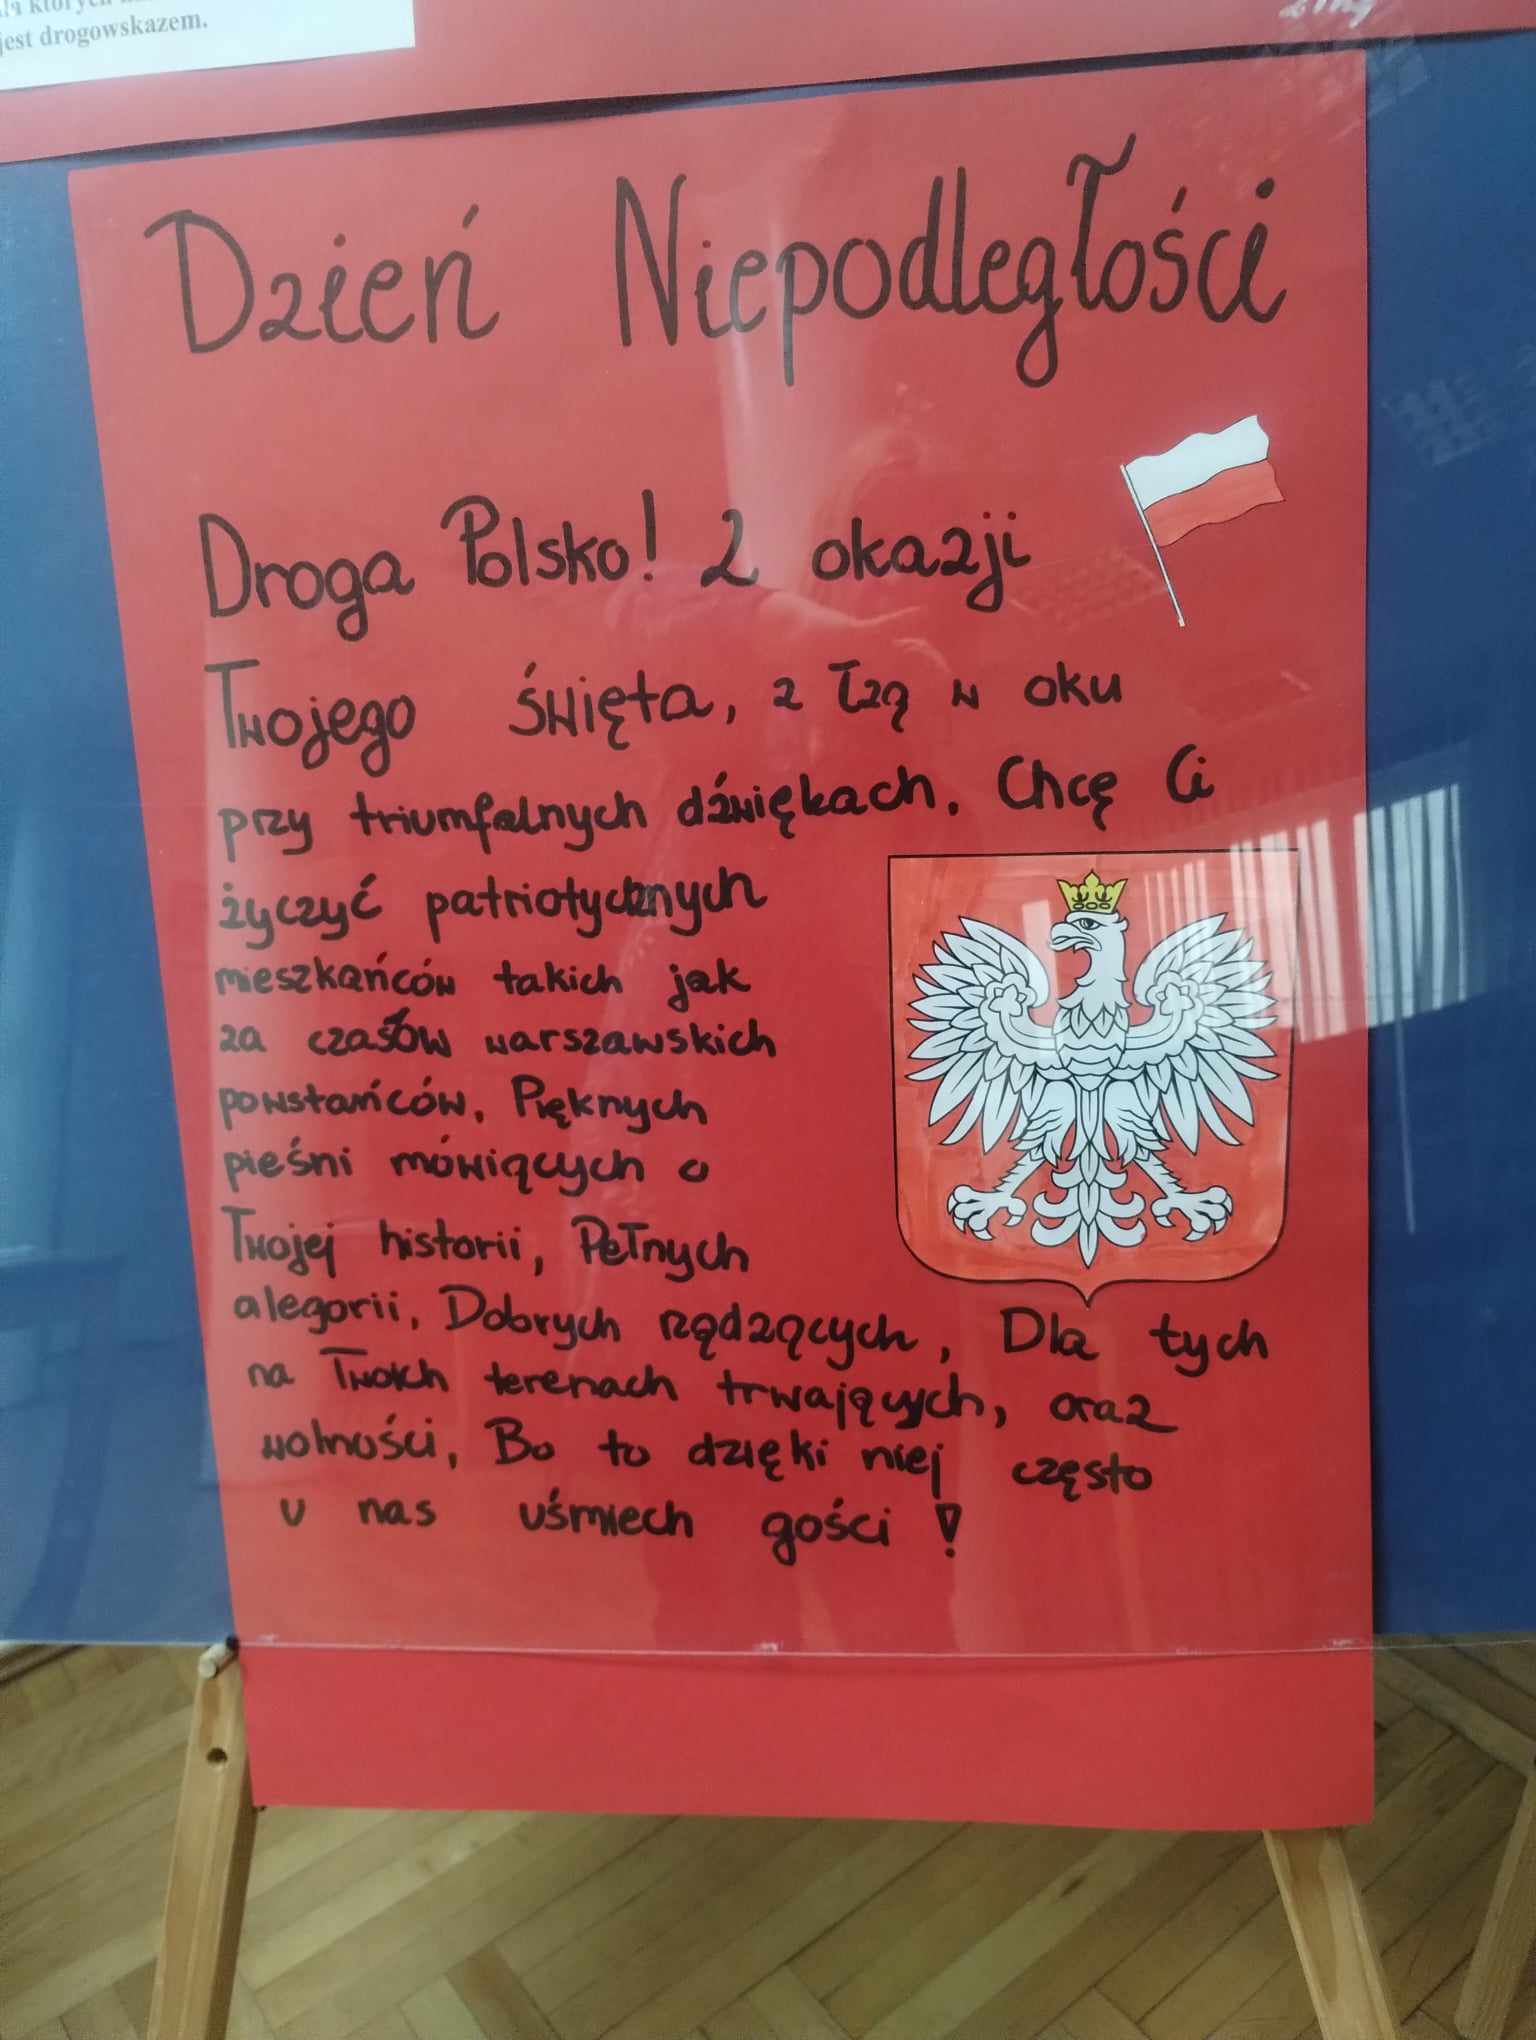 których
jest drogowskazem.
Dzień Niepodległości
Droga Polsko! Z okazji
Twojego święta, z łzą w oku
przy triumfalnych dźwiękach. Chcę Ci
życzyć patriotycznych
mieszkańców takich jak
za czasów warszawskich
powstańców, Pięknych
pieśni mówiących o
Twojej historii, Pełnych
alegorii, Dobrych rządzących, Dla tych
na Twoich terenach trwających, oraz
wolności, Bo to dzięki niej często
u nas uśmiech gości!